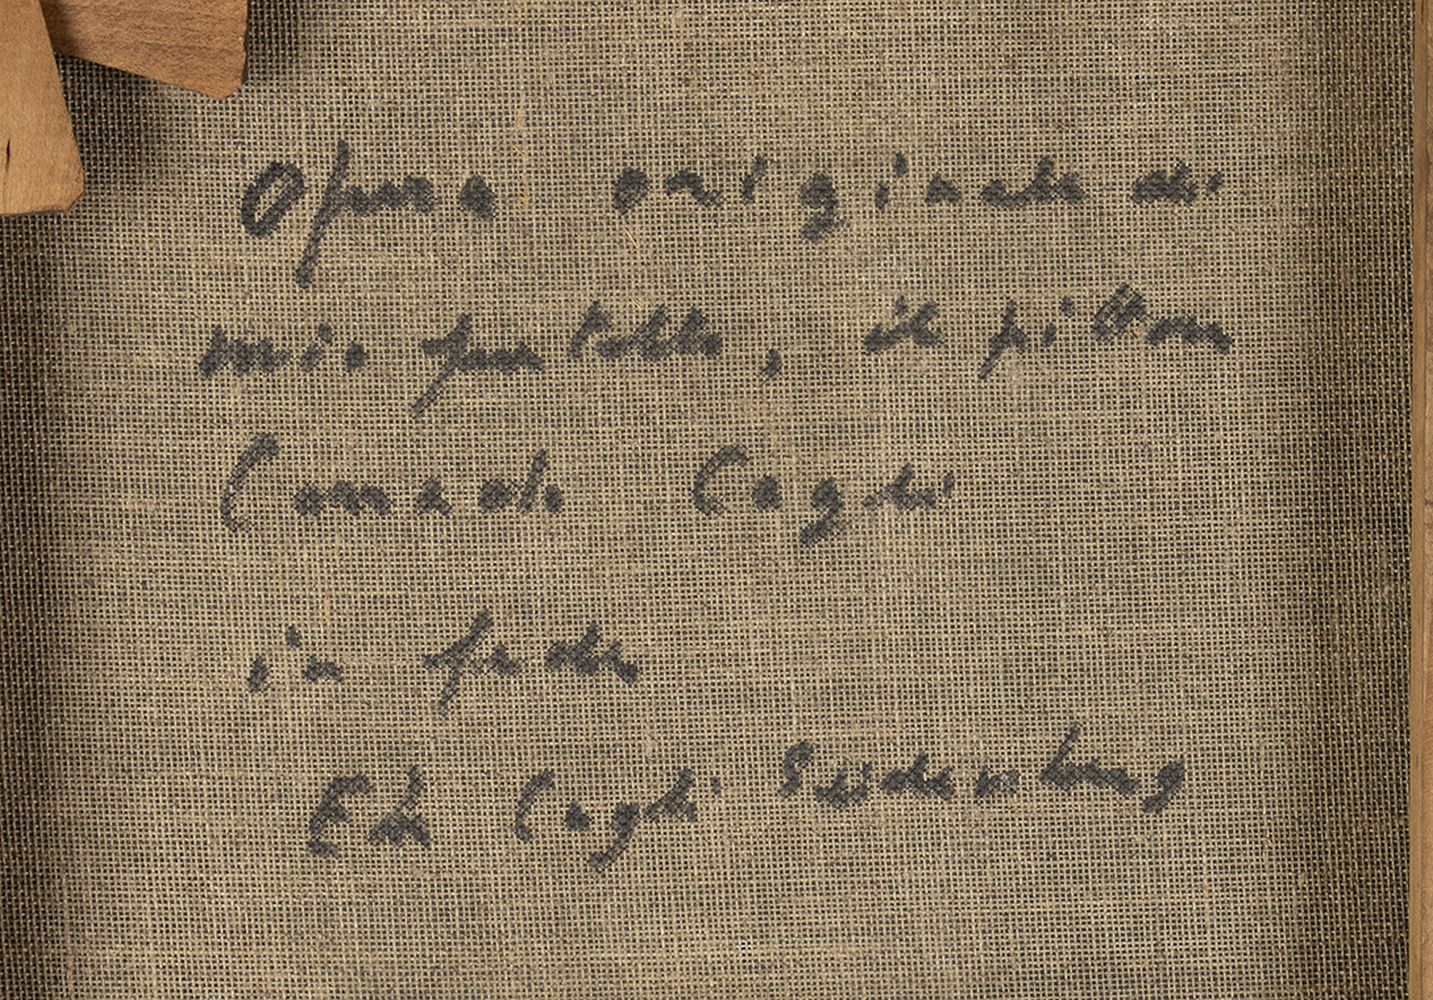 Opera originale di
mio fratello, il pittore
Corrado Cagli
in fede
Ebe Cagli Seidenberg